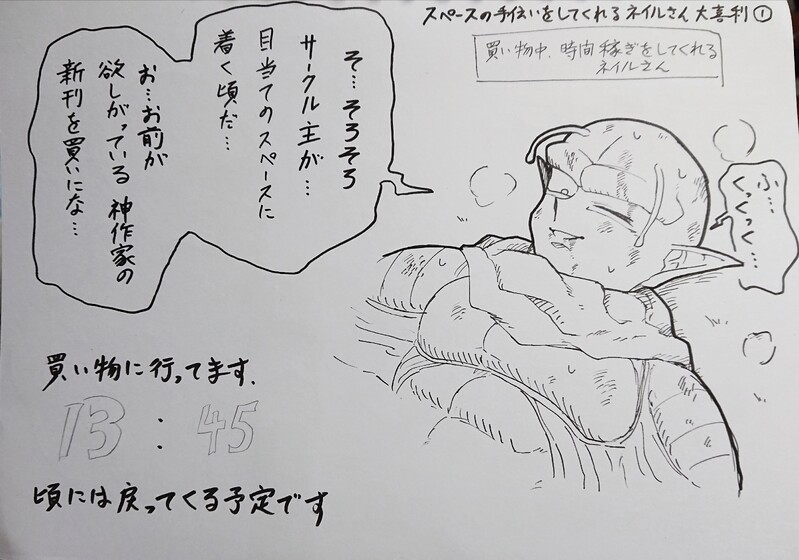 スペースの手伝いをしてくれるネイルさん大喜利①
買い物中、時間稼ぎをしてくれる
ネイルさん
そ…そろそろ
サークル主が…
目当てのスペースに
着く頃だ…
お…お前が
欲しがっている神作家の
新刊を買いにな…
ふ…
くっくっく…
買い物に行ってます、
13:45
頃には戻ってくる予定です